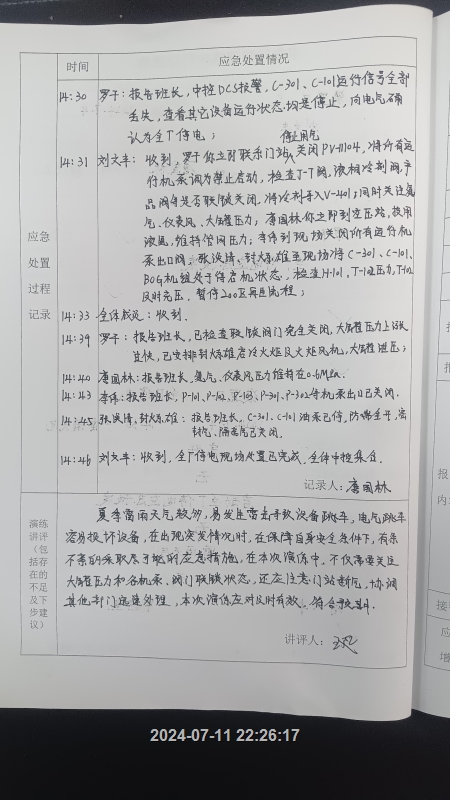 时间 应急处置情况
14:30 罗子：报告班长，中控DCS报警，C-301、C-101运行信号全部
丢失，查看其它设备运行状态均是停止，向电气确
认为全厂停电；
停止用气
14:31 刘文丰：收到，罗子你立即联系门站，关闭PV-11104，将所有运
行机泵调为禁止启动，检查J-T阀，液相冷剂阀，产
品阀等是否联锁关闭，将冷剂导入V-401；同时关注氮
气、仪表风、大储罐压力；唐国林你立即到空压站，投用
液氮，维持管网压力；李伟到现场关闭所有运行机
泵出口阀，张洪涛、封大雄至现场将C-301、C-101、
BOG机组处于待启机状态，检查H-101、T-102压力，
及时充压，暂停200区再生流程；
14:33 全体成员：收到．
14:39 罗子：报告班长，已检查联锁阀门完全关闭，大储罐压力上涨
过快，已安排封大雄启冷火炬及火炬风机，大储罐泄压；
14:40 唐国林：报告班长，氮气、仪表风压力维持在0.6MPa．
14:43 李伟：报告班长，P-101、P-102、P-103、P-301、P-302待机泵出口已关闭．
14:45 张洪涛、封大雄：报告班长，C-301、C-101油泵已停，防喘全开，密
封气、隔离气已关闭．
14:46 刘文丰：收到，全厂停电现场处置已完成，全体中控集合．
记录人：唐国林
应急
处置
过程
记录
演练
讲评
（包
括存
在的
不足
及下
步建
议）
夏季雷雨天气较多，易发生雷击导致设备跳车，电气跳车
容易损坏设备，在出现突发情况时，在保障自身安全条件下，有条
不紊的采取尽可能的应急措施，在本次演练中，不仅需要关注
大储罐压力和各机泵、阀门联锁状态，还应注意门站断气，协调
其他部门迅速处理，本次演练应对及时有效，符合预期．
讲评人：
2024-07-11 22:26:17